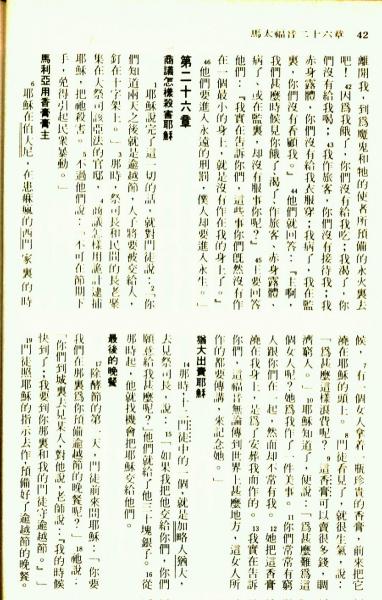 馬太福音二十六章 42
離開我，到爲魔鬼和牠的使者所預備的永火裏去
吧！42因爲我餓了，你們沒有給我吃；我渴了，你
們沒有給我喝；43我作旅客，你們沒有接待我；我
赤身露體，你們沒有給我衣服穿；我病了，我在監
裏，你們沒有看顧我。』44他們就回答：『主啊，
我們甚麼時候見你餓了、渴了、作旅客、赤身露體、
病了，或在監裏，却沒有服事你呢？』45王要回答
他們：『我實在告訴你們，這些事你們既然沒有作
在一個最小的身上，就是沒有作在我的身上了。』
46他們要進入永遠的刑罰，義人却要進入永生。」
第二十六章
商議怎樣殺害耶穌
1耶穌說完了這一切的話，就對門徒說：2「你
們知道兩天之後就是逾越節，人子將要被交給人，
釘在十字架上。」3那時，祭司長和民間的長老聚
集在大祭司該亞法的官邸，4商議怎樣用詭計逮捕
耶穌，把祂殺害。5不過他們說：「不可在節期下
手，免得引起民衆暴動。」
馬利亞用香膏膏主
6耶穌在伯大尼，在患痲瘋的西門家裏的時
候，7有一個女人拿着一瓶珍貴的香膏，前來把它
澆在耶穌的頭上。8門徒看見了，就很生氣，說：
「爲甚麼這樣浪費呢？9這香膏可以賣很多錢，賙
濟窮人。」10耶穌知道了，便說：「爲甚麼難爲這
個女人呢？她爲我作了一件美事。11你們常常有窮
人跟你們在一起，然而却不常有我。12她把這香膏
澆在我身上，是爲了安葬我而作的。13我實在告訴
你們，這福音無論傳到世界上甚麼地方，這女人所
作的都要傳講，來記念她。」
猶大出賣耶穌
14那時，十二門徒中的一個，就是加略人猶大，
去見祭司長，說：15「如果我把他交給你們，你們
願意給我甚麼呢？」他們就給了他三十塊銀子。16從
那時起，他就找機會把耶穌交給他們。
最後的晚餐
17除酵節的第一天，門徒前來問耶穌：「你要
我們在那裏爲你預備逾越節的晚餐呢？」18祂說：
「你們到城裏去見某人，對他說，老師說：『我的時候
快到了，我要到你那裏和我的門徒守逾越節。』」
19門徒照耶穌的指示去作，預備好了逾越節的晚餐。